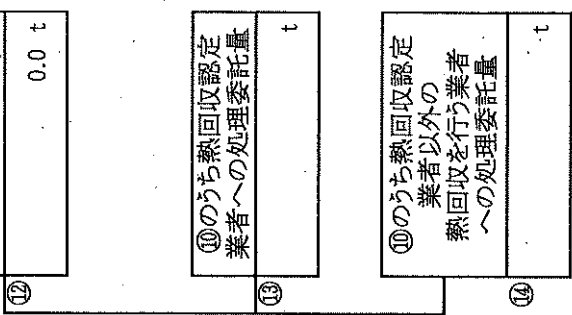 ⑫
0.0 t
⑩のうち熱回収認定
業者への処理委託量
⑬
t
⑩のうち熱回収認定
業者以外の
熱回収を行う業者
への処理委託量
⑭
t